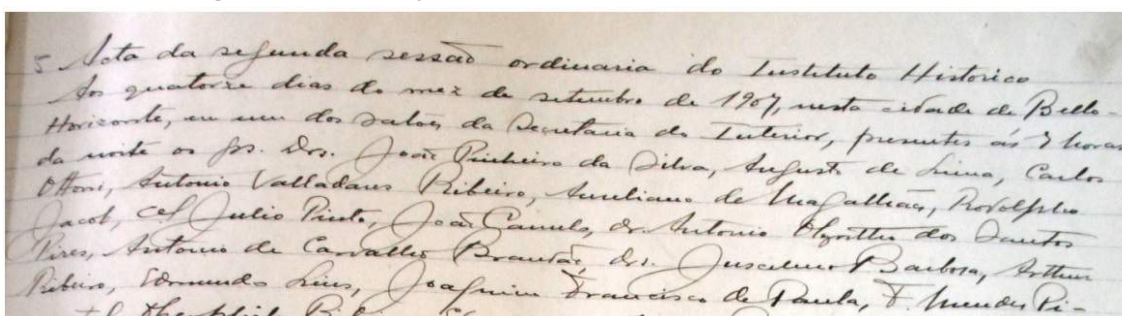 5 Acta da segunda sessão ordinaria do Instituto Historico
Aos quatorze dias do mez de setembro de 1907, nesta cidade de Bello-
Horizonte, em um dos salões da Secretaria do Interior, presentes ás 7 horas
da noite os srs. Drs. João Pinheiro da Silva, Augusto de Lima, Carlos
Ottoni, Antonio Valladares Ribeiro, Aureliano de Magalhães, Rodolpho
Jacob, cel Julio Pinto, João Camelo, dr. Antonio Olyntho dos Santos
Pires, Antonio de Carvalho Brandão, drs. Juscelino Barbosa, Arthur
Ribeiro, Edmundo Lins, Joaquim Francisco de Paula, F. Mendes Pi-